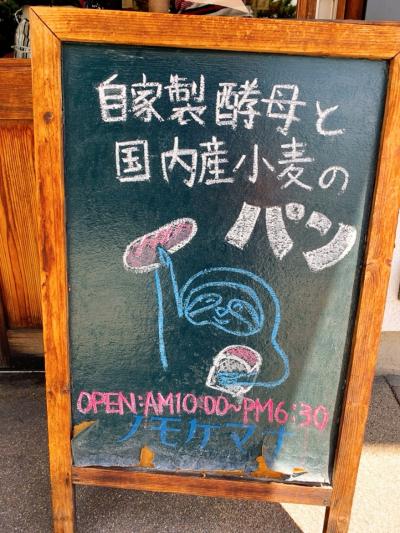 自家製酵母と
国内産小麦の
パン
OPEN:AM10:00~PM6:30
ノモケマナ